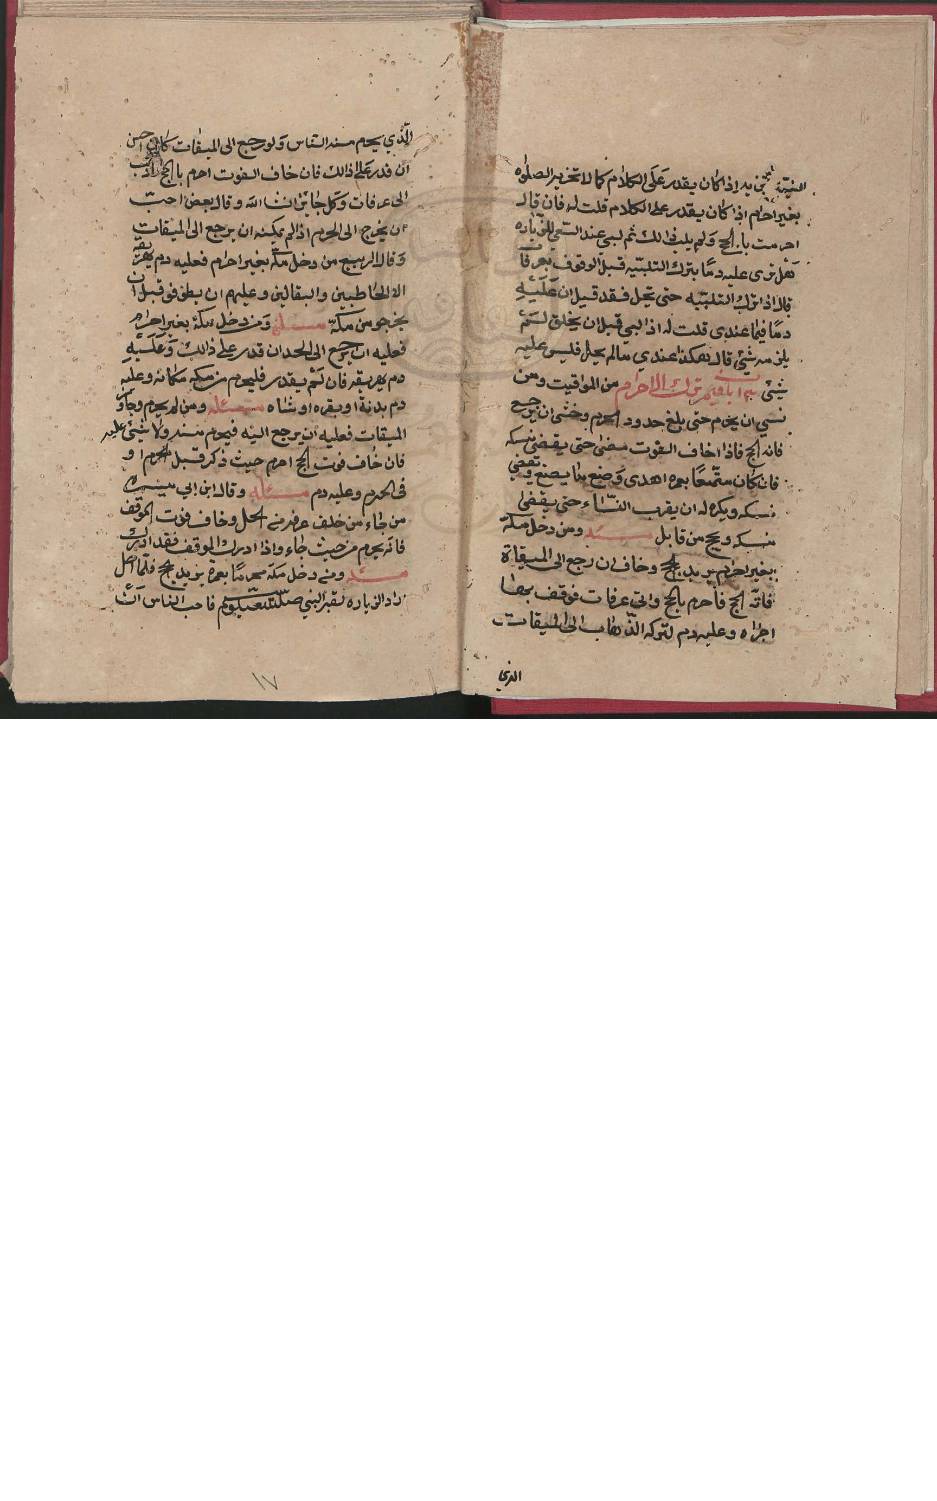 النية بين يد اذا كان يقدر على الكلام كما لا تجزيه الصلوة
بغير احرام اذا كان يقدر على الكلام قلت له فان قال
احرمت بالحج ولم يلب في ذلك ثم لبى عند السعي للزياره
هل ترى عليه دما بترك التلبيه قبل الوقوف بعرفات
قال اذا ترك التلبيه حتى يحل فقد قيل ان عليه
دما فيما عندي قلت له اذا لبى قبل ان يحلق لم
يلزمه شيء قال هكذا عندي ما لم يحل فليس عليه
شيئ باب فيمن ترك الاحرام من المواقيت ومن
نسي ان يحرم حتى بلغ حدود الحرم وخشى ان رجع
فاته الحج فاذا خاف الفوت مضى حتى يقضي نسكه
فان كان متمتعا بعمره اهدى وصنع ما يصنع ويقضي
نسكه ويكره له ان يقرب النساء حتى يقضي
منسكه ويحج من قابل مسئله ومن دخل مكة
بغير احرام يريد الحج وخاف ان رجع الى الميقاة
فاته الحج فاحرم بالحج واتى عرفات فوقف بها
اجزاه وعليه دم لتركه الذهاب الى الميقات
الذي
الذي يحرم منه الناس ولو رجع الى الميقات كان احسن
ان قدر على ذالك فان خاف الفوت احرم بالحج
الى عرفات وكل جايز ان شا الله وقال بعض احب
ان يخرج الى الحرم اذا لم يمكنه ان يرجع الى الميقات
وقال الربيع من دخل مكة بغير احرام فعليه دم يهريقه
الا الحاطبين والبقالين وعليهم ان يطوفو قبل ان
يخرجو من مكة مسئلة ومن دخل مكة بغير احرام
فعليه ان يرجع الى الحد ان قدر على ذالك وعليه
دم يهريقه فان لم يقدر فليحرم من مكه مكانه وعليه
دم بدنة او بقره او شاه مسئله ومن لم يحرم وجاوز
الميقات فعليه ان يرجع اليه فيحرم منه ولا شئ عليه
فان خاف فوت الحج احرم حيث ذكر قبل الحرم او
في الحرم وعليه دم مسئله وقال ابن ابي ميسرة
من جاء من خلف عرفه من الحل وخاف فوت الموقف
فانه يحرم من حيث جاء واذا ادرك الموقف فقد ادرك
مسئله ومن دخل مكة محرما بعمرة يريد الحج فلما احل
زاد الزياره لقبر النبي صلى الله عليه وسلم فاحب الناس
١٧